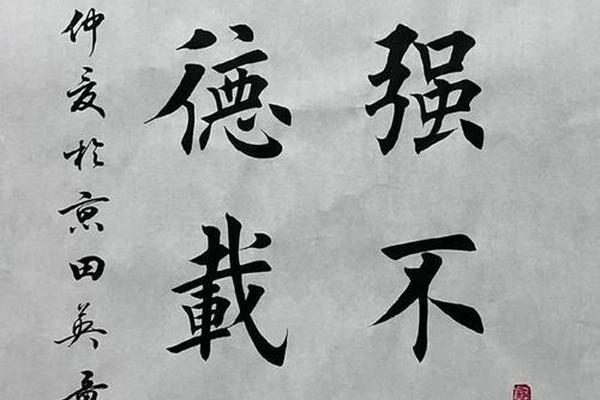 强不
德載
仲夏於京田英章